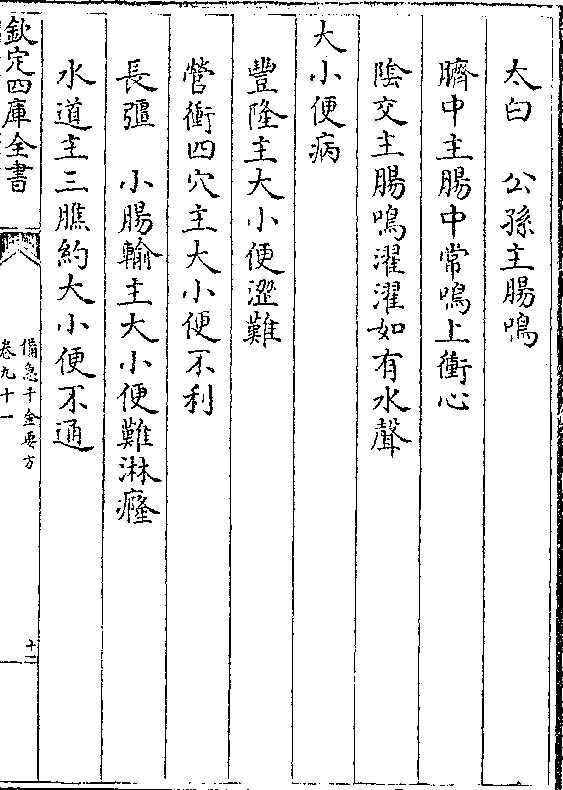 太白　公孫主腸鳴
臍中主腸中常鳴上衝心
陰交主腸鳴濯濯如有水聲
大小便病
豐隆主大小便澀難
營衝四穴主大小便不利
長彊　小腸輸主大小便難淋癃
水道主三膲約大小便不通
欽定四庫全書
備急千金要方
卷九十一
十一